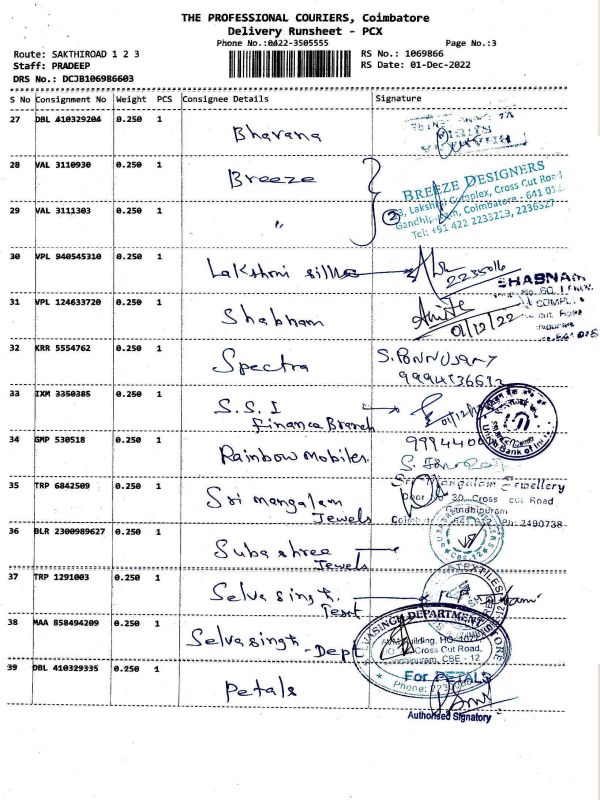 THE PROFESSIONAL COURIERS, Coimbatore
Delivery Runsheet - PCX
Phone No.:0422-3505555 Page No.:3
Route: SAKTHIROAD 1 2 3 RS No.: 1069866
Staff: PRADEEP RS Date: 01-Dec-2022
DRS No.: DCJB106986603
S No Consignment No Weight PCS Consignee Details Signature
27 DBL 410329204 0.250 1 Bhavana
28 VAL 3110930 0.250 1 Breeze
BREEZE DESIGNERS
Complex, Cross Cut Road
29 VAL 3111303 0.250 1 " 2
Coimbatore - 641 012
Tel: +91 422 2233223, 2236527
30 VPL 940545310 0.250 1 Lakshmi silks
2235016
SHABNAM
31 VPL 124633720 0.250 1 Shabnam
01/12/22
32 KRR 5554762 0.250 1 Spectra S. PONNUSAMY
33 IXM 3350385 0.250 1 S.S.I
Finance Branch
Union Bank of India
34 GMP 530518 0.250 1 Rainbow mobiles
35 TRP 6842509 0.250 1 Sri mangalam
Jewels
Sri Mangalam Jewellery
Door 30, Cross cut Road
Gandhipuram
Ph: 2490738
36 BLR 2300989627 0.250 1 Subashree
Jewels
CBE-12
37 TRP 1291003 0.250 1 Selvasingh
Text
38 MAA 858494209 0.250 1 Selvasingh - Dept
SELVASINGH DEPARTMENT STORE
Building,
Cross Cut Road,
CBE - 12
39 DBL 410329335 0.250 1 Petals
For PETALS
Authorised Signatory